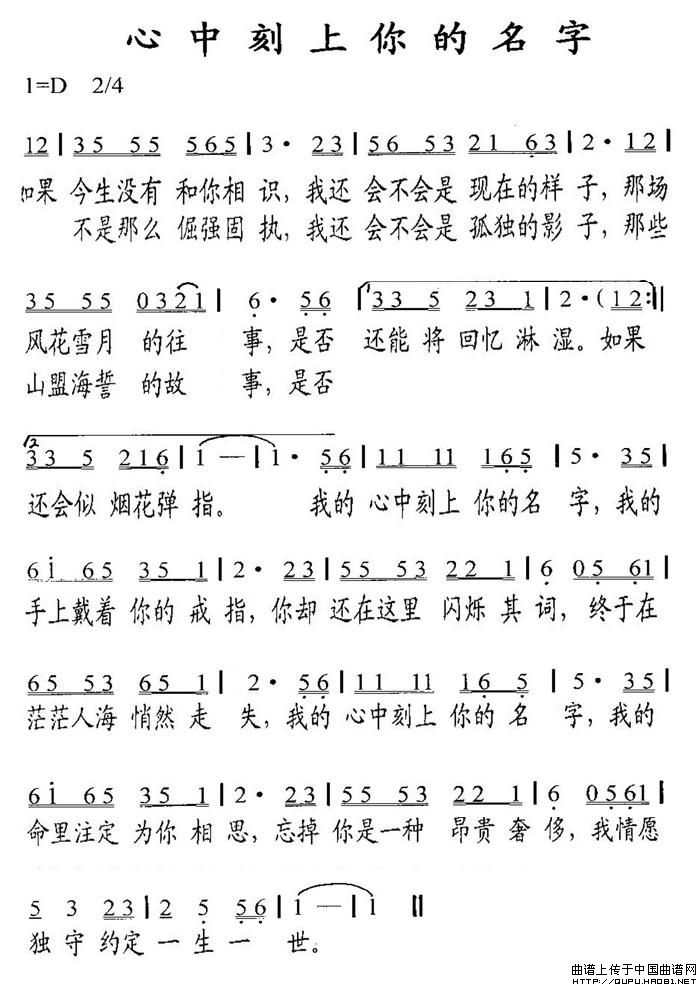 心中刻上你的名字
1=D 2/4
12 | 35 55 565 | 3· 23 | 56 53 21 63 | 2· 12 |
如果 今生没有 和你相 识，我还 会不会是 现在的样 子，那场
不是那么 倔强固 执，我还 会不会是 孤独的影 子，那些
35 55 0321 | 6· 56 | 1. 33 5 23 1 | 2·（12 :||
风花雪月 的往 事，是否 还能 将 回忆 淋 湿。如果
山盟海誓 的故 事，是否
2. 33 5 216 | 1 — | 1· 56 | 11 11 165 | 5· 35 |
还会似 烟花弹 指。 我的 心中刻上 你的名 字，我的
6i 65 35 1 | 2· 23 | 55 53 22 1 | 6 05 61 |
手上戴着 你的 戒 指，你却 还在这里 闪烁 其 词， 终于在
65 53 65 1 | 2· 56 | 11 11 16 5 | 5· 35 |
茫茫人海 悄然 走 失，我的 心中刻上 你的 名 字，我的
6i 65 35 1 | 2· 23 | 55 53 22 1 | 6 0561 |
命里注定 为你 相 思，忘掉 你是一种 昂贵 奢 侈，我情愿
5 3 23 | 2 5 56 | 1 — | 1 ||
独 守 约定 一 生 一 世。
曲谱上传于中国曲谱网
HTTP://QUPU.HAO81.NET